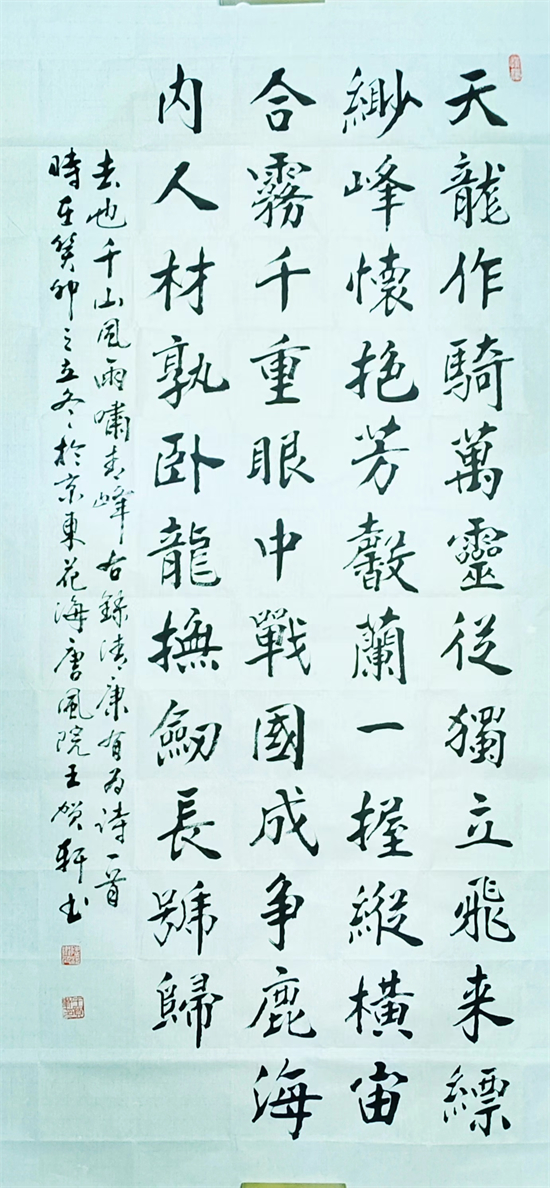 天龍作騎萬靈從獨立飛来縹
緲峰懷抱芳馨蘭一握縱橫宙
合霧千重眼中戰國成争鹿海
内人材孰卧龍撫劒長號歸
去也千山風雨嘯青峰右錄清康有为诗一首
時在癸卯之立冬於京東花海唐風院王贺軒书